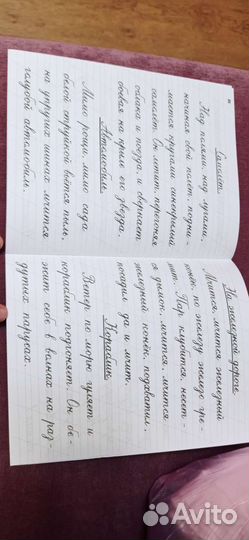 Самолёт.
Над полями, над лугами,
начиная свой полёт, подни-
мается кругами синекрылый
самолёт. Он летит, перегоняя
облака и поезда, и сверкает
боевая на крыле его звезда.
Автомобиль.
Мимо рощи, мимо сада
белой струйкой вьётся пыль,
на упругих шинах мчится
голубой автомобиль.
На железной дороге.
Мчится, мчится железный
конёк, по железу железо гре-
мит. Пар клубится, несёт-
ся дымок, мчится, мчится
железный конёк, подхватил,
посадил да и мчит.
Кораблик.
Ветер по морю гуляет и
кораблик подгоняет. Он бе-
жит себе в волнах на раз-
дутых парусах.
Avito